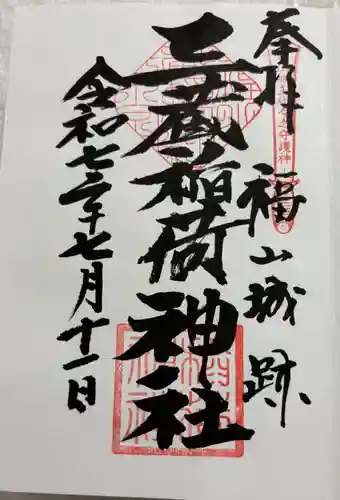 奉拝 福山城跡
守護神
三蔵稲荷神社
令和七年七月十一日